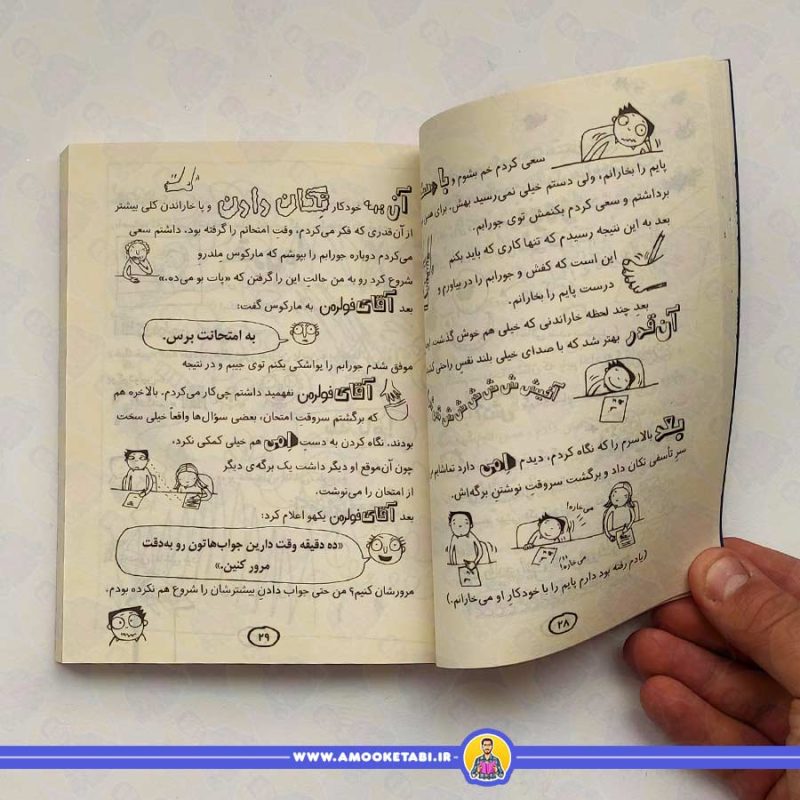 سعی کردم خم بشوم و با
پایم را بخارانم، ولی دستم خیلی نمی‌رسید بهش. برای همین
برداشتم و سعی کردم بکنمش توی جورابم.
بعد به این نتیجه رسیدم که تنها کاری که باید بکنم
این است که کفش و جورابم را در بیاورم و
درست پایم را بخارانم.
بعدِ چند لحظه خاراندنی که خیلی هم خوش گذشت،
آن‌قدر بهتر شد که با صدای خیلی بلند نفس راحتی
آخیش ش ش ش ش ش ش
بعد بالاسرم را که نگاه کردم، دیدم اِمی دارد تماشایم
سرِ تأسفی تکان داد و برگشت سروقتِ نوشتنِ برگه‌اش.
می‌خاره!
می‌خاره!
(یادم رفته بود دارم پایم را با خودکارِ او می‌خارانم.)
۲۸
آن همه خودکار تکان دادن و پا خاراندن کلی بیشتر
از آن‌قدری که فکر می‌کردم، وقت امتحانم را گرفته بود. داشتم سعی
می‌کردم دوباره جورابم را بپوشم که مارکوس مِلدرو
شروع کرد رو به من حالتِ این را گرفتن که «پات بو می‌ده.»
بعد آقای فولرمن به مارکوس گفت:
به امتحانت برس.
موفق شدم جورابم را یواشکی بکنم توی جیبم و در نتیجه
آقای فولرمن نفهمید داشتم چی‌کار می‌کردم. بالاخره هم
که برگشتم سروقتِ امتحان، بعضی سؤال‌ها واقعاً خیلی سخت
بودند. نگاه کردن به دستِ اِمی هم خیلی کمکی نکرد،
چون آن‌موقع او دیگر داشت یک برگه‌ی دیگر
از امتحان را می‌نوشت.
بعد آقای فولرمن یکهو اعلام کرد:
«ده دقیقه وقت دارین جواب‌هاتون رو به‌دقت
مرور کنین.»
مرورشان کنیم؟ من حتی جواب دادنِ بیشترشان را شروع هم نکرده بودم.
۲۹
WWW.AMOOKETABI.IR